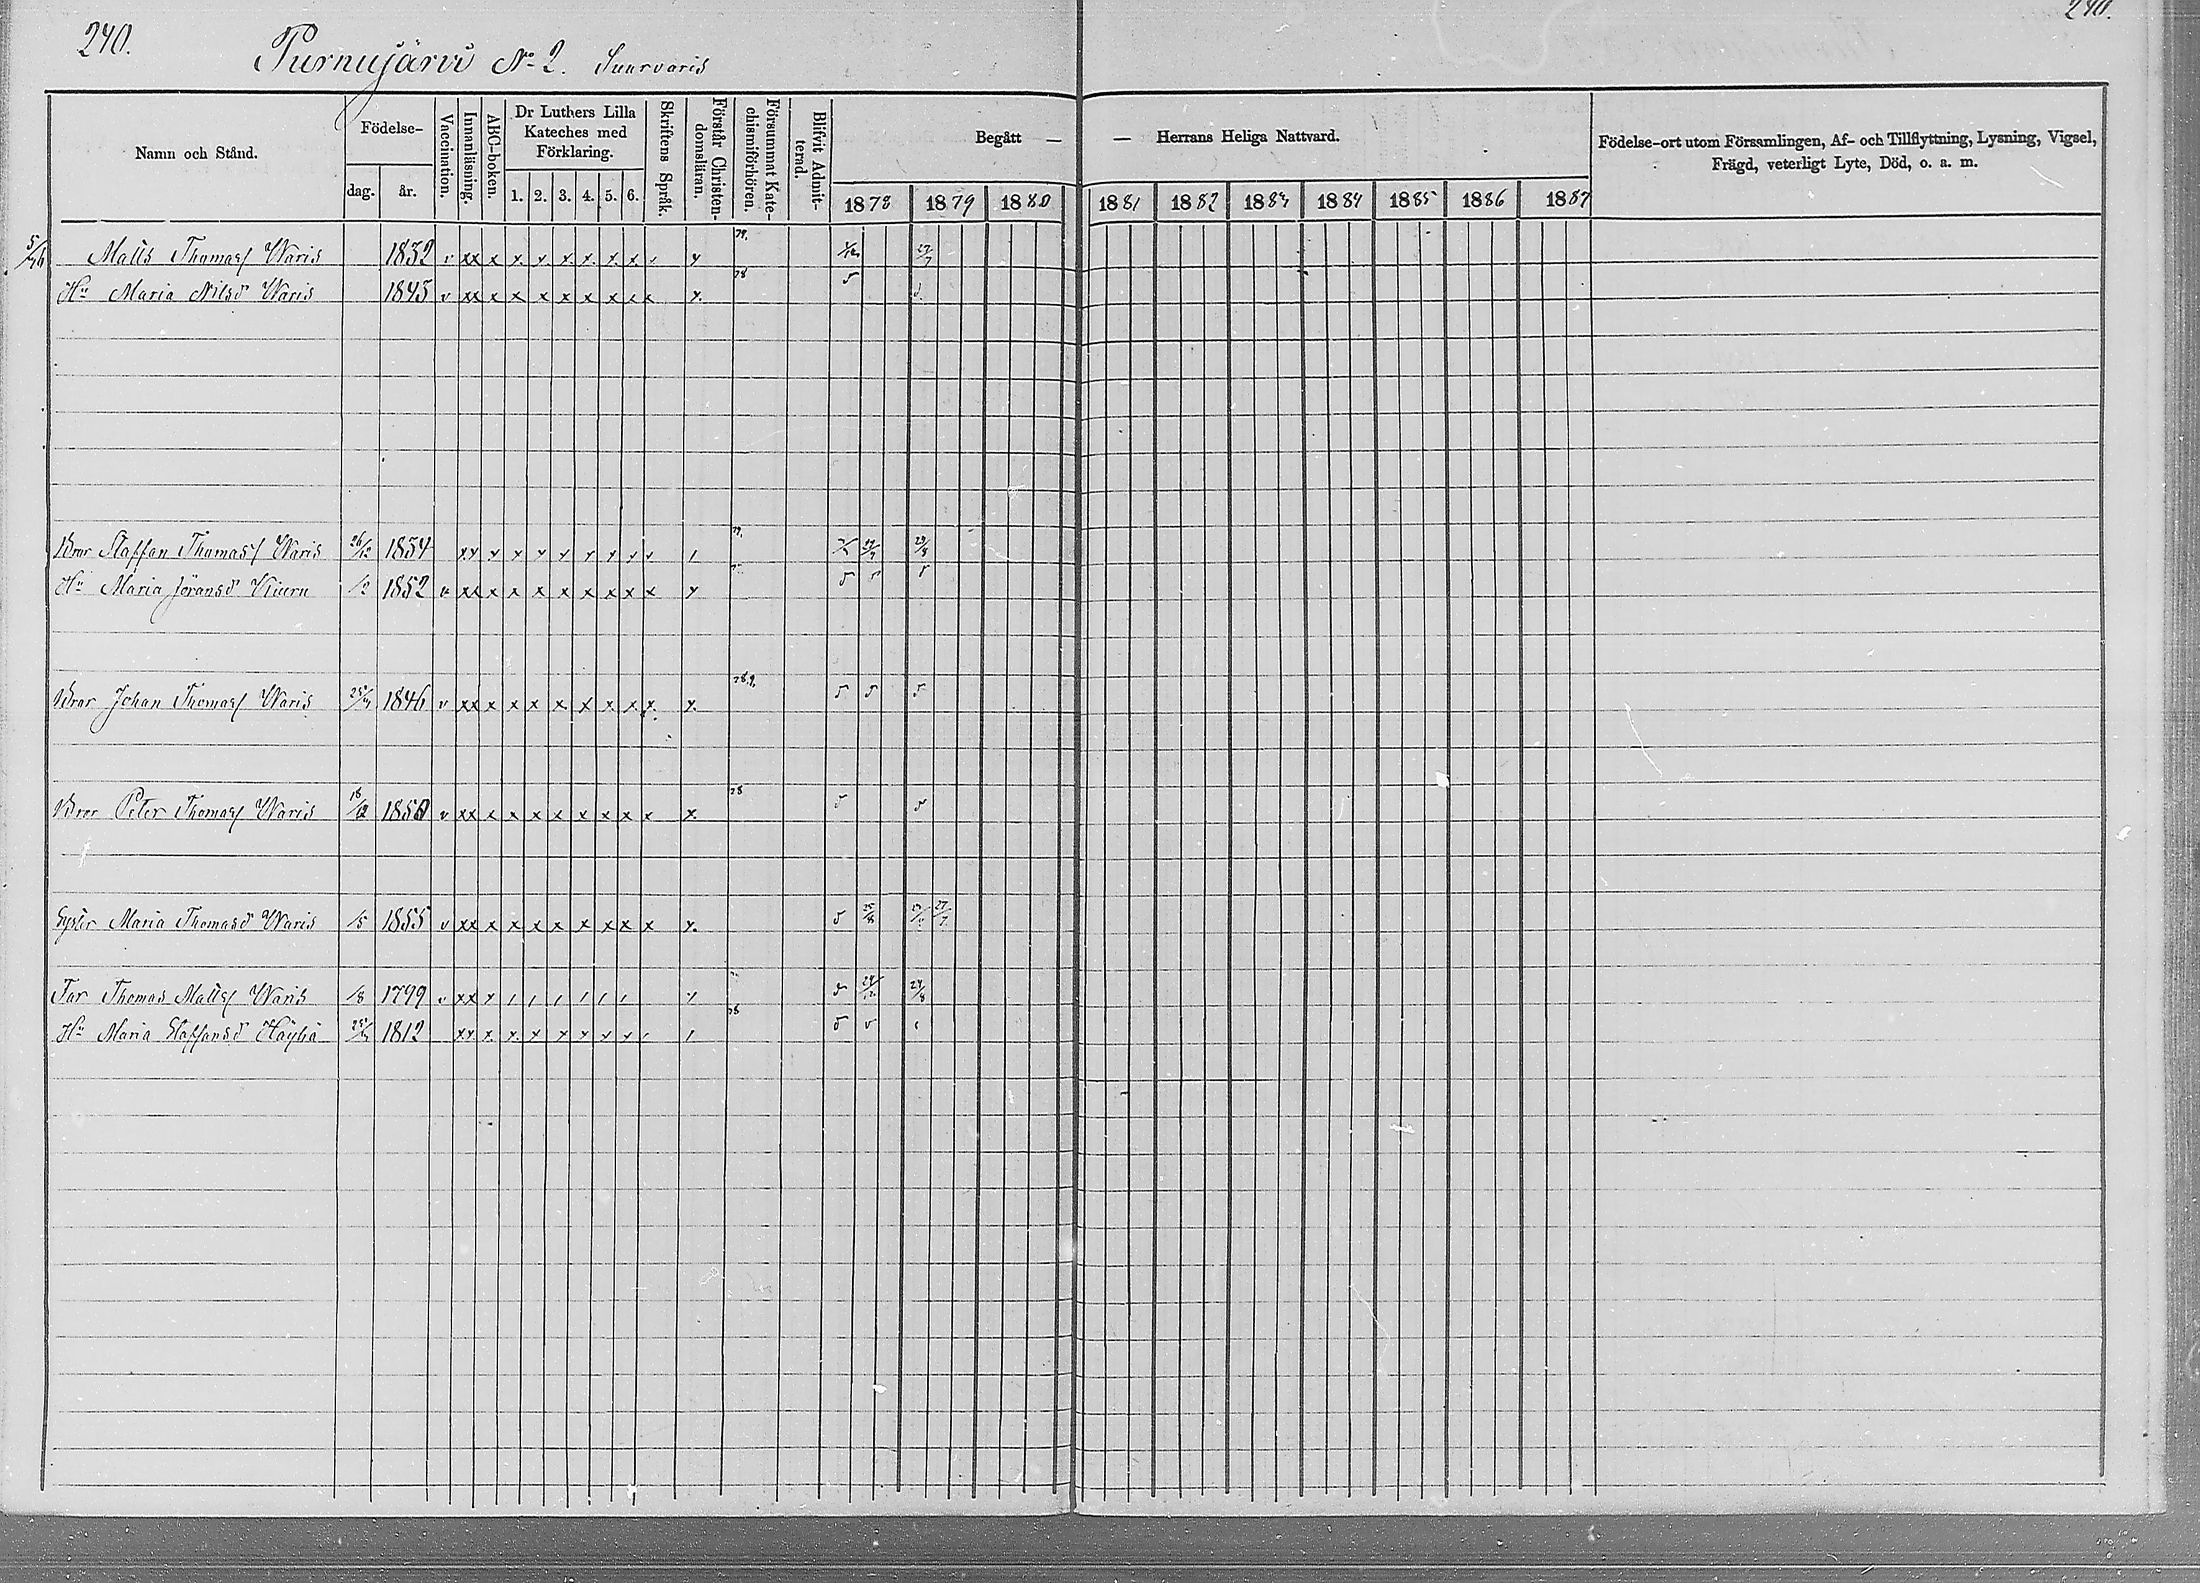 240.
Purnujärvi No 2. Suurvaris
240.
Namn och Stånd.
Födelse-
dag.
år.
Vaccination.
Innanläsning.
ABC-boken.
Dr Luthers Lilla
Kateches med
Förklaring.
1. 2. 3. 4. 5. 6.
Skriftens Språk.
Förstår Christen-
domsläran.
Försummat Kate-
chismiförhören.
Blifvit Admit-
terad.
Begått — — Herrans Heliga Nattvard.
1878 1879 1880 1881 1882 1883 1884 1885 1886 1887
Födelse-ort utom Församlingen, Af- och Tillflyttning, Lysning, Vigsel,
Frägd, veterligt Lyte, Död, o. a. m.
Matts Thomasf Waris 1832 v xx x x x x x x x x 79. 27/7
Hu Maria Nilsd Waris 1843 v xx x x x x x x x x x 78
Bror Staffan Thomasf Waris 26/12 1834 xx x x x x x x x 79.
Hu Maria Jöransd Kiuru /2 1852 v xx x x x x x x x x x
Bror Johan Thomasf Waris 1846 v xx x x x x x x x x x 78.9.
Bror Peter Thomasf Waris 1850 v xx x x x x x x x x x 78
Syster Maria Thomasd Waris /5 1855 v xx x x x x x x x x x 25/8 27/7
Far Thomas Mattsf Waris /8 1799 v xx x 24/8
Hu Maria Staffansd Häyhä 1812 xx x x x x x x x 78